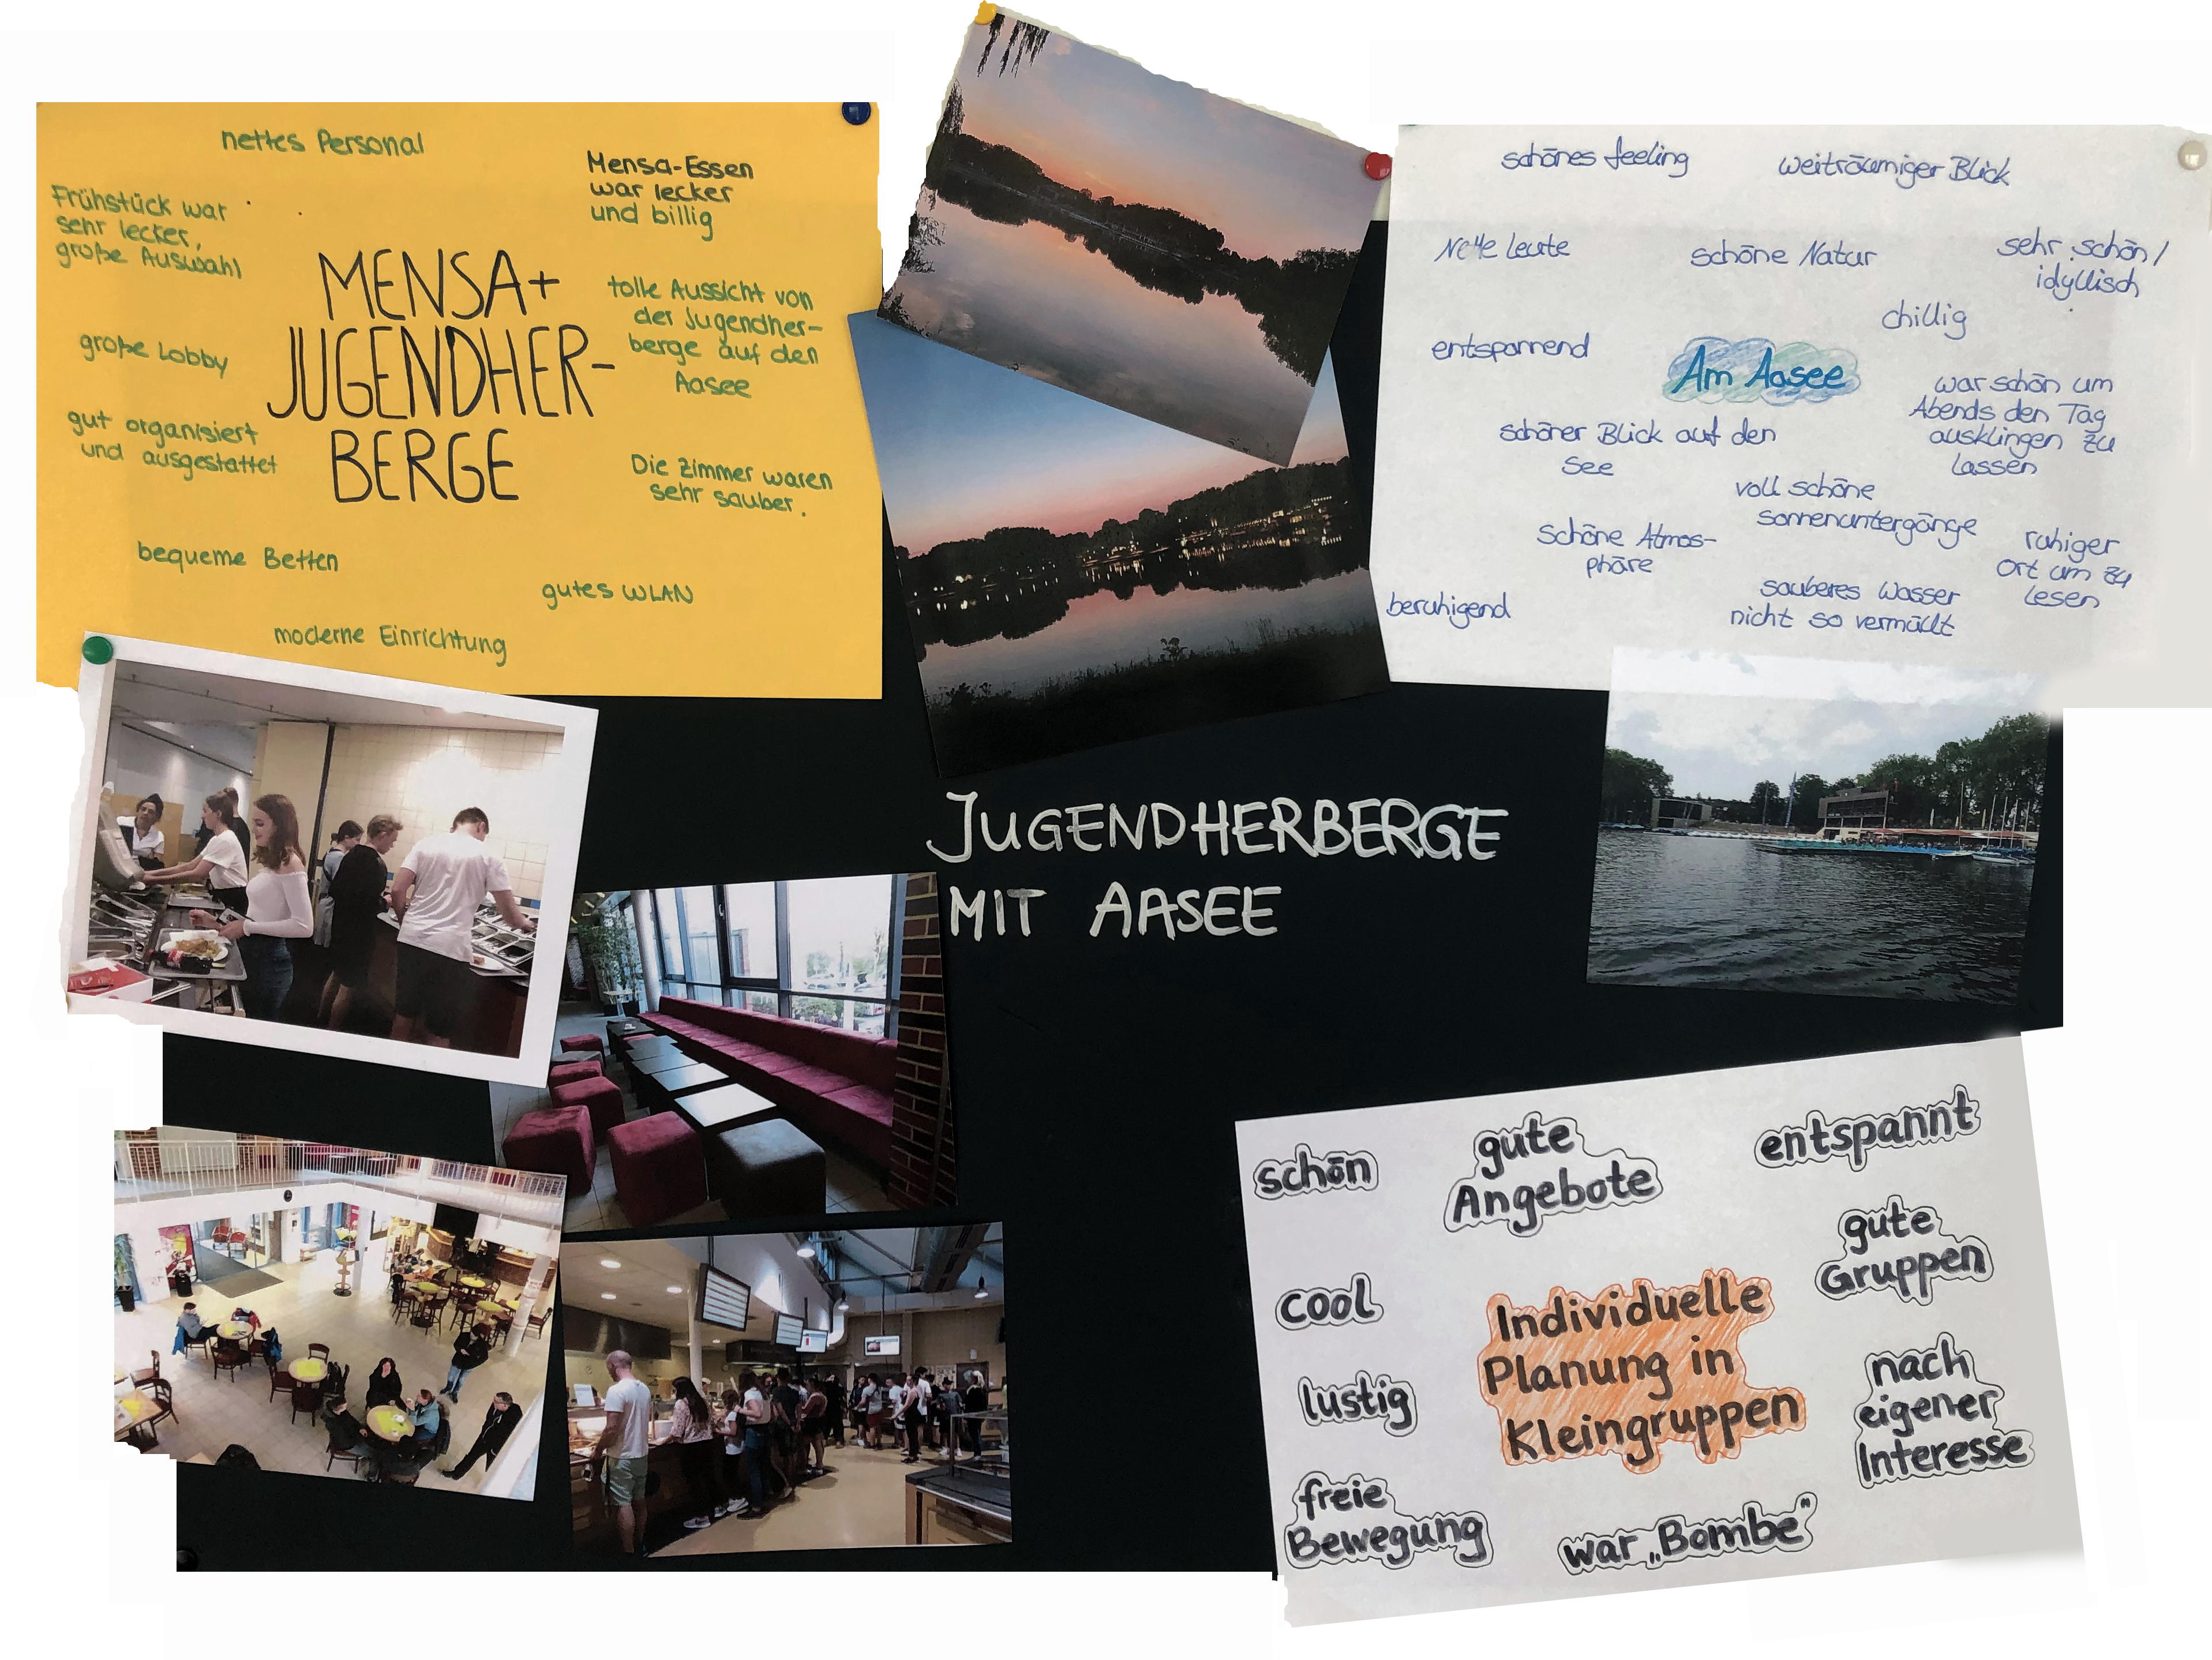 nettes Personal
Mensa-Essen
war lecker
und billig
Frühstück war
sehr lecker,
große Auswahl
MENSA+
JUGENDHER-
BERGE
tolle Aussicht von
der Jugendher-
berge auf den
Aasee
große Lobby
gut organisiert
und ausgestattet
Die Zimmer waren
sehr sauber.
bequeme Betten
gutes WLAN
moderne Einrichtung
schönes feeling
weiträumiger Blick
Nette Leute
schöne Natur
sehr schön/
idyllisch
chillig
entspannend
Am Aasee
war schön um
Abends den Tag
ausklingen zu
lassen
schöner Blick auf den
See
voll schöne
sonnenuntergänge
schöne Atmos-
phäre
ruhiger
Ort um zu
lesen
beruhigend
sauberes Wasser
nicht so vermüllt
JUGENDHERBERGE
MIT AASEE
schön
gute
Angebote
entspannt
gute
Gruppen
cool
Individuelle
Planung in
Kleingruppen
lustig
nach
eigener
Interesse
freie
Bewegung
war „Bombe"